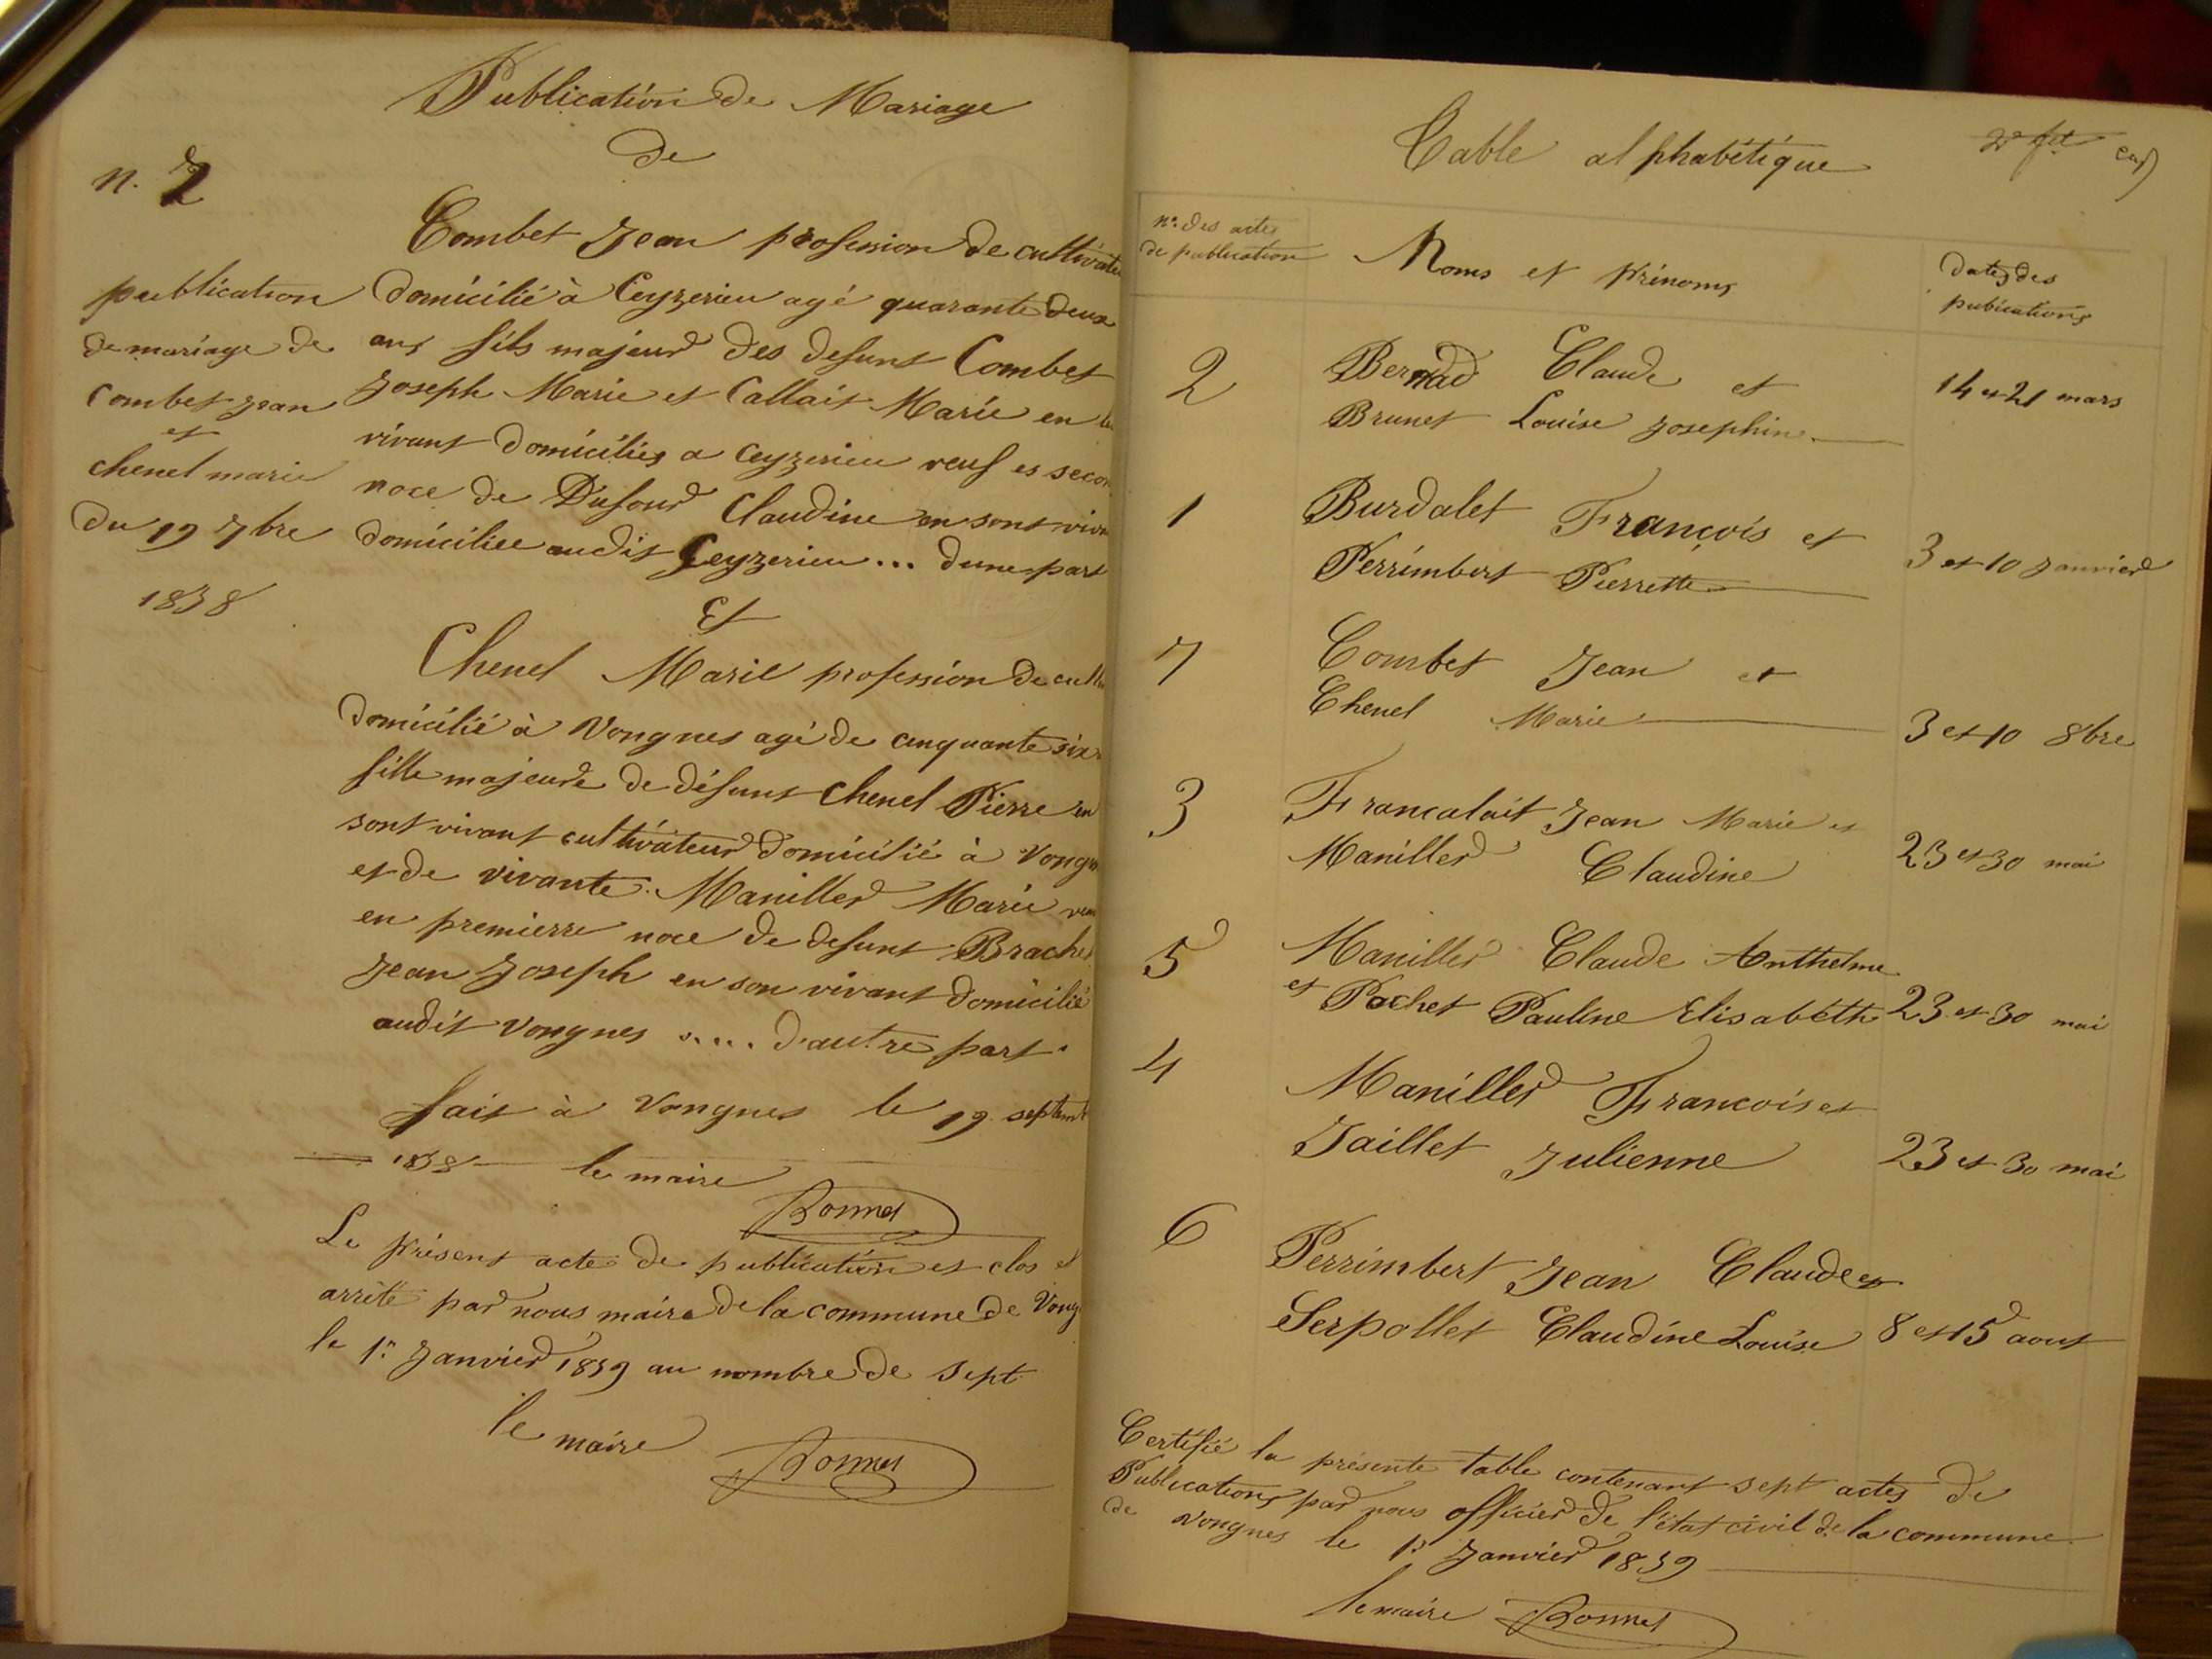 Publication de Mariage
de
n. 2
Combet Jean profession de cultivate
domicilié à Ceyzerieu agé quarante deux
ans fils majeur des defunt Combet
Joseph Marie et Callait Marie en
vivant domiciliés a Ceyzerieu veuf es secon
noce de Dufour Claudine en sont viva
domiciliee audit Ceyzerieu ... dune part
publication
de mariage de
Combet Jean
et
chenel marie
du 19 7bre
1858
Et
Chenel Marie profession de cult
domicilié à Vongnes agé de cinquante six
fille majeure de défunt Chenel Pierre en
sont vivant cultivateur domicilié à Vongn
et de vivante Maniller Marie veu
en premierre noce de defunt Brache
Jean Joseph en son vivant domicilié
audit Vongnes .... d'autre part.
fait à Vongnes le 19 septem
1858 le maire
Bonnet
Le présent acte de publication et clos et
arrêté par nous maire de la commune de Vong
le 1er Janvier 1859 au nombre de sept
le maire Bonnet
Table alphabétique
no. des actes
de publication
Noms et Prénoms
Dates des
pubications
2 Bernad Claude et 14 et 21 mars
Brunet Louise Josephine
1 Burdalet François et
Perrimbert Pierrette 3 et 10 Janvier
7 Combet Jean et
Chenel Marie 3 et 10 8bre
3 Francalait Jean Marie et
Maniller Claudine 23 et 30 mai
5 Maniller Claude Anthelme
et Pochet Pauline Elisabéth 23 et 30 mai
4 Maniller Francois et
Jaillet Julienne 23 et 30 mai
6 Perrimbert Jean Claude et
Serpollet Claudine Louise 8 et 15 aout
Certifié la présente table contenant sept actes de
Publications par nous officier de l'état civil de la commune
de Vongnes le 1er Janvier 1859
le maire Bonnet